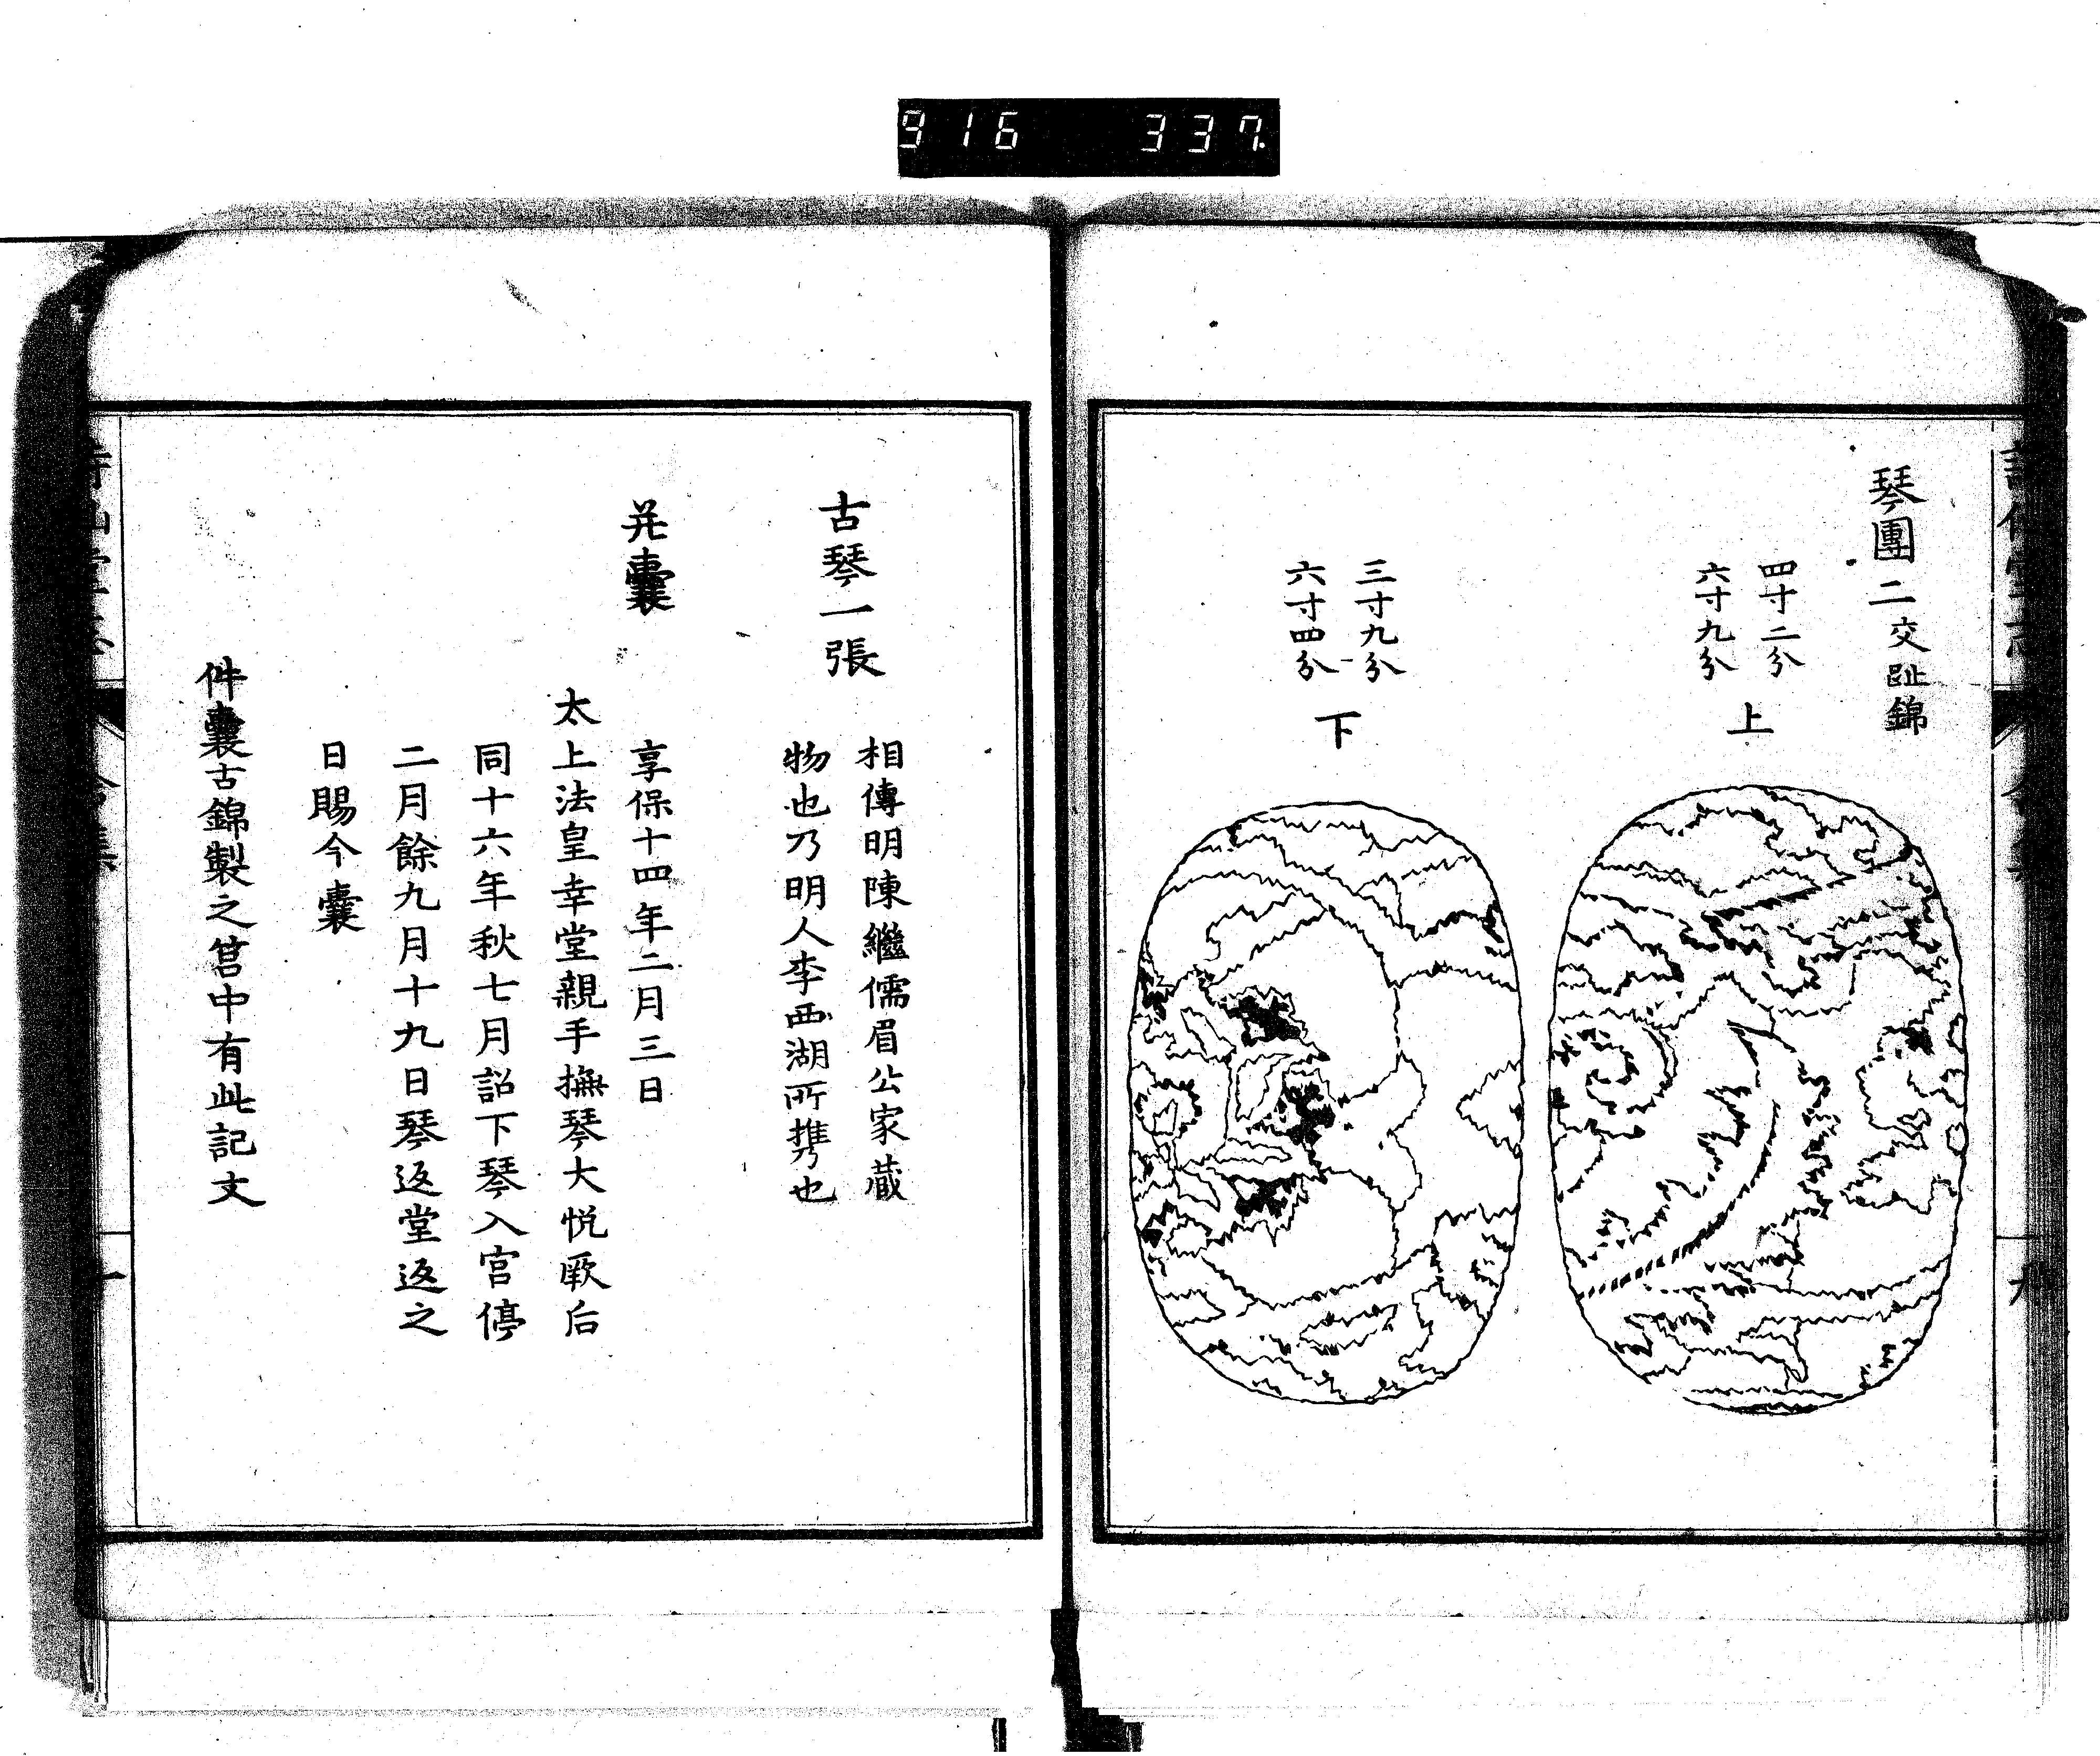 916 337.
琴團二交趾錦
四寸二分
六寸九分
上
三寸九分
六寸四分
下
九
古琴一張
相傳明陳繼儒眉公家藏
物也乃明人李西湖所携也
并囊
享保十四年二月三日
太上法皇幸堂親手撫琴大悦厥后
同十六年秋七月詔下琴入宮停
二月餘九月十九日琴返堂返之
日賜今囊
件囊古錦製之筥中有此記文